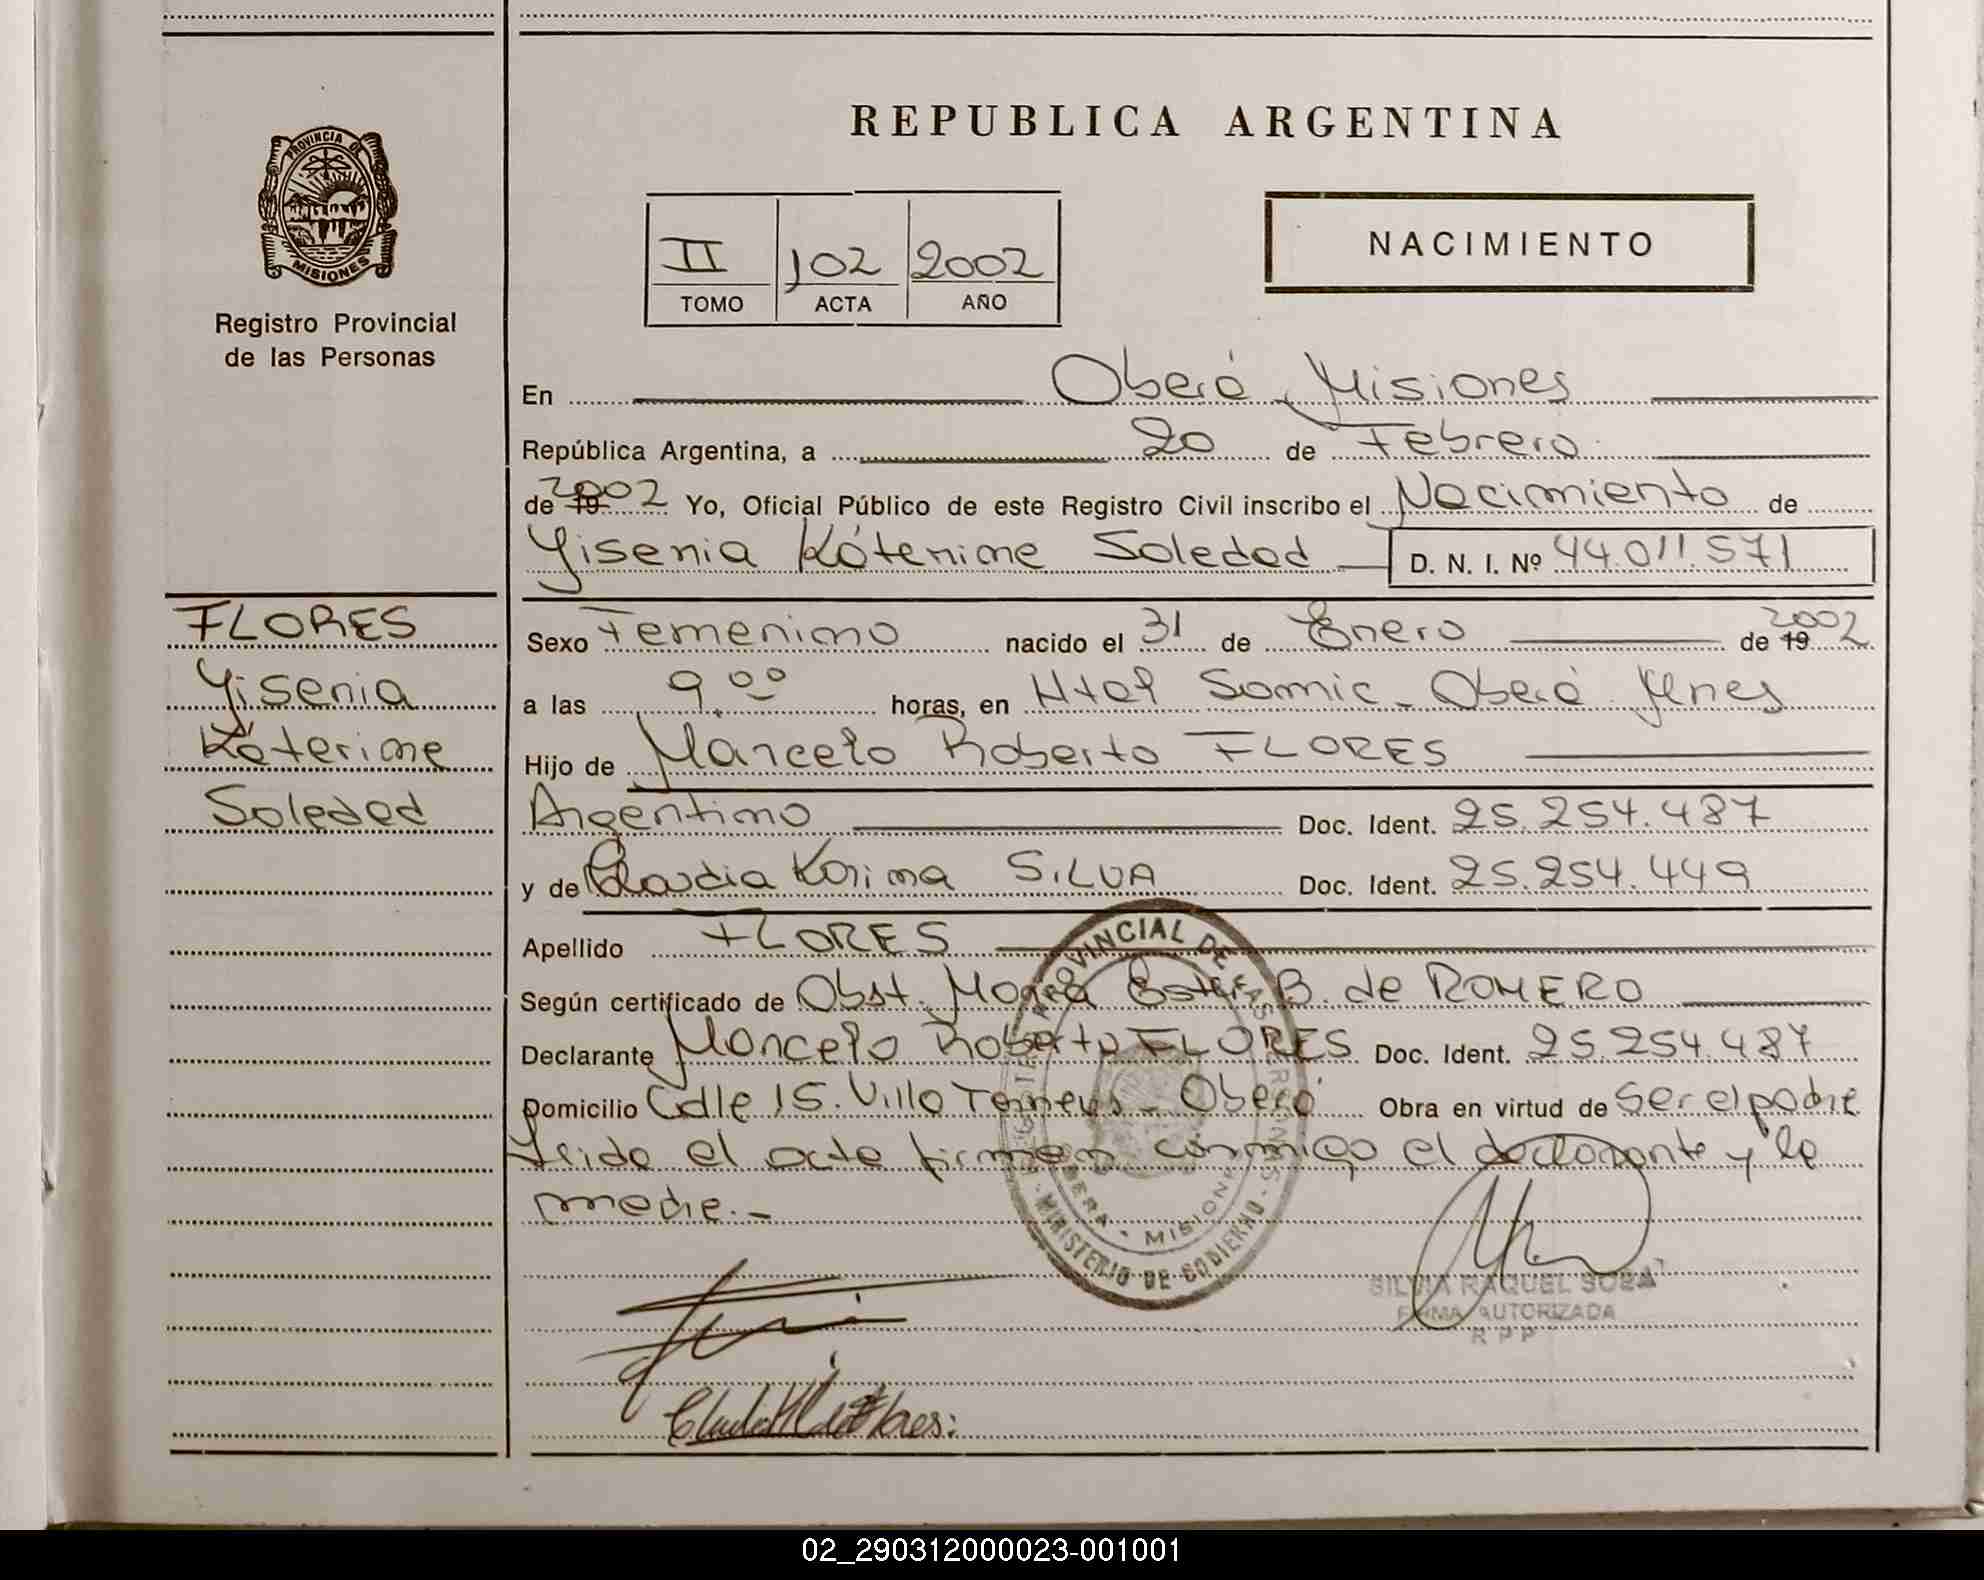 REPUBLICA ARGENTINA
PROVINCIA DE
MISIONES
Registro Provincial
de las Personas
II 102 2002
TOMO ACTA AÑO
NACIMIENTO
En Oberá Misiones
República Argentina, a 20 de Febrero
de 19 2002 Yo, Oficial Público de este Registro Civil inscribo el Nacimiento de
Yisenia Káterine Soledad D. N. I. Nº 44.011.571
FLORES
Yisenia
Káterine
Soledad
Sexo Femenino nacido el 31 de Enero de 19 2002
a las 9 00 horas, en Htal Samic - Oberá Mnes
Hijo de Marcelo Roberto FLORES
Argentino Doc. Ident. 25.254.487
y de Claudia Karina SILVA Doc. Ident. 25.254.449
Apellido FLORES
Según certificado de Obst. María Ester B. de ROMERO
Declarante Marcelo Roberto FLORES Doc. Ident. 25.254.487
Domicilio Calle 15. Villa - Oberá Obra en virtud de ser el padre
Leida el acta firman conmigo el declarante y la
madre.-
PROVINCIAL DE LAS PERSONAS
OBERA - MISIONES
MINISTERIO DE GOBIERNO
SILVIA RAQUEL SOSA
FIRMA AUTORIZADA
R P P
02_290312000023-001001